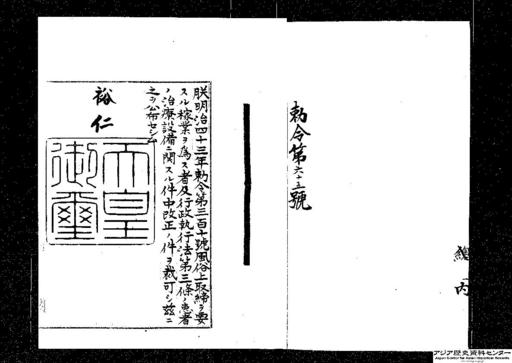 勅令第六十五號
朕明治四十三年勅令第三百十號風俗上取締ヲ要
スル稼業ヲ為ス者及行政執行法第三條ノ患者
ノ治療設備ニ関スル件中改正ノ件ヲ裁可シ茲ニ
之ヲ公布セシム
裕仁
天皇
御璽
内
アジア歴史資料センター
Japan Center for Asian Historical Records